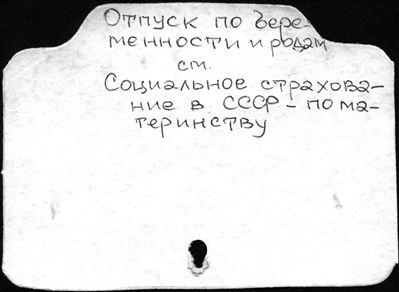 Отпуск по бере-
менности и родам
см.
Социальное страхова-
ние в СССР - по ма-
теринству